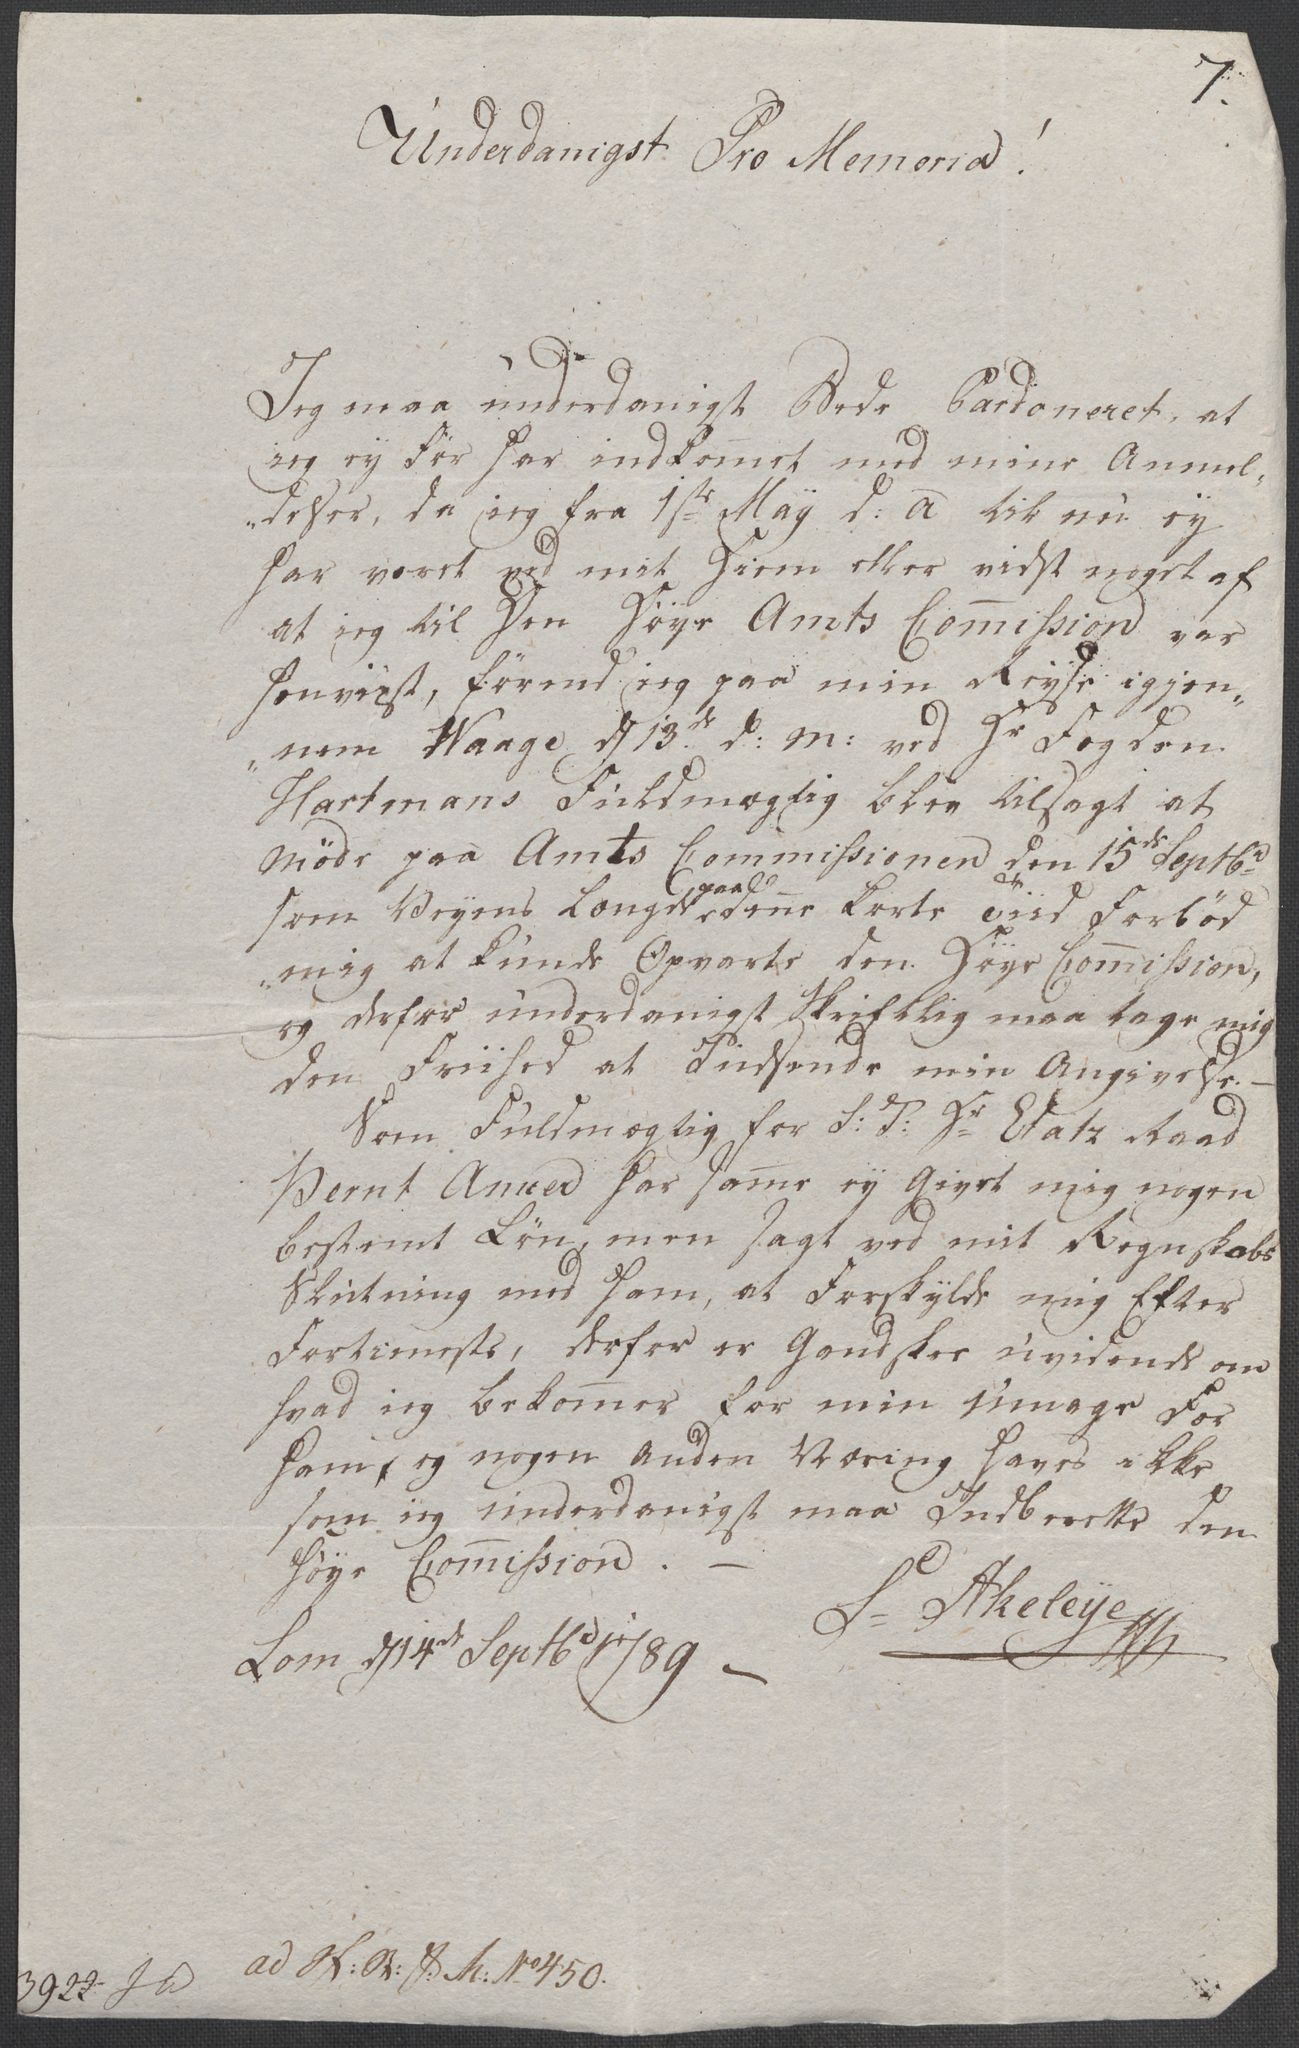 7.
Underdanigst Pro Memoria!
Jeg maa underdanigst Bede Pardoneret, at
ieg ey Før har indkom̄et med mine Anmel„
„delser, da ieg fra 1ste Maÿ d: a til nu eÿ
har været ved mit Hiem eller vidst noget af
at ieg til Den Höye Amts Com̄ission var
henviist, förend ieg paa min Reÿse igjen„
„nem Waage d 13de d: M: ved Hr Fogden
Hartmans Fuldmægtig blev tilsagt at
Möde paa Amts Commissionen den 15de Septbr
som Veyens Længde paa den̄e korte Tiid Forböd
„mig at kunde Opvarte den Höye Com̄ission,
og derfor underdanigst Skriftlig maa tage mig
den Friihed at Indsende min Angivelse. —
Som Fuldmægtig for S: T: Hr Etatz Raad
Bernt Anker har sam̄e eÿ Givet mig nogen
bestemt Lön, men sagt ved mit Regnskabs
Slutning med ham, at Forskylde mig Efter
Fortieneste, derfor er Gandske uvidende om
hvad ieg bekom̄er for min umage For
ham, og nogen anden Næring haves ikke
som ieg underdanigst maa Indberette den
höye Com̄ission. —
S= Akeleÿe
Lom d 14de Septbr 1789 —
ad R: M: No 450.
3922